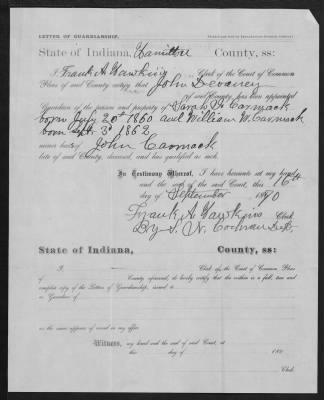 LETTER OF GUARDIANSHIP.
State of Indiana, Hamilton County, ss:
I Frank A Hawkins Clerk of the Court of Common
Pleas of and County certify that John Devaney
of said County has been appointed
Guardian of the person and property of Sarah J. Carmack
born July 20th 1860 and William W. Carmack
born Sept. 3d 1862
minor heirs of John Carmack
late of said County, deceased, and has qualified as such.
In Testimony Whereof, I have hereunto set my hand
and the seal of said Court, this 16th
day of September 1870
Frank A Hawkins Clerk
By Cochran
State of Indiana, County, ss:
I Clerk of the Court of Common Pleas
of County aforesaid, do hereby certify that the within is a full, true and
complete copy of the Letters of Guardianship, issued to
as Guardian of
as the same appears of record in my office.
Witness, my hand and the seal of said Court, at
this day of 186
Clerk.